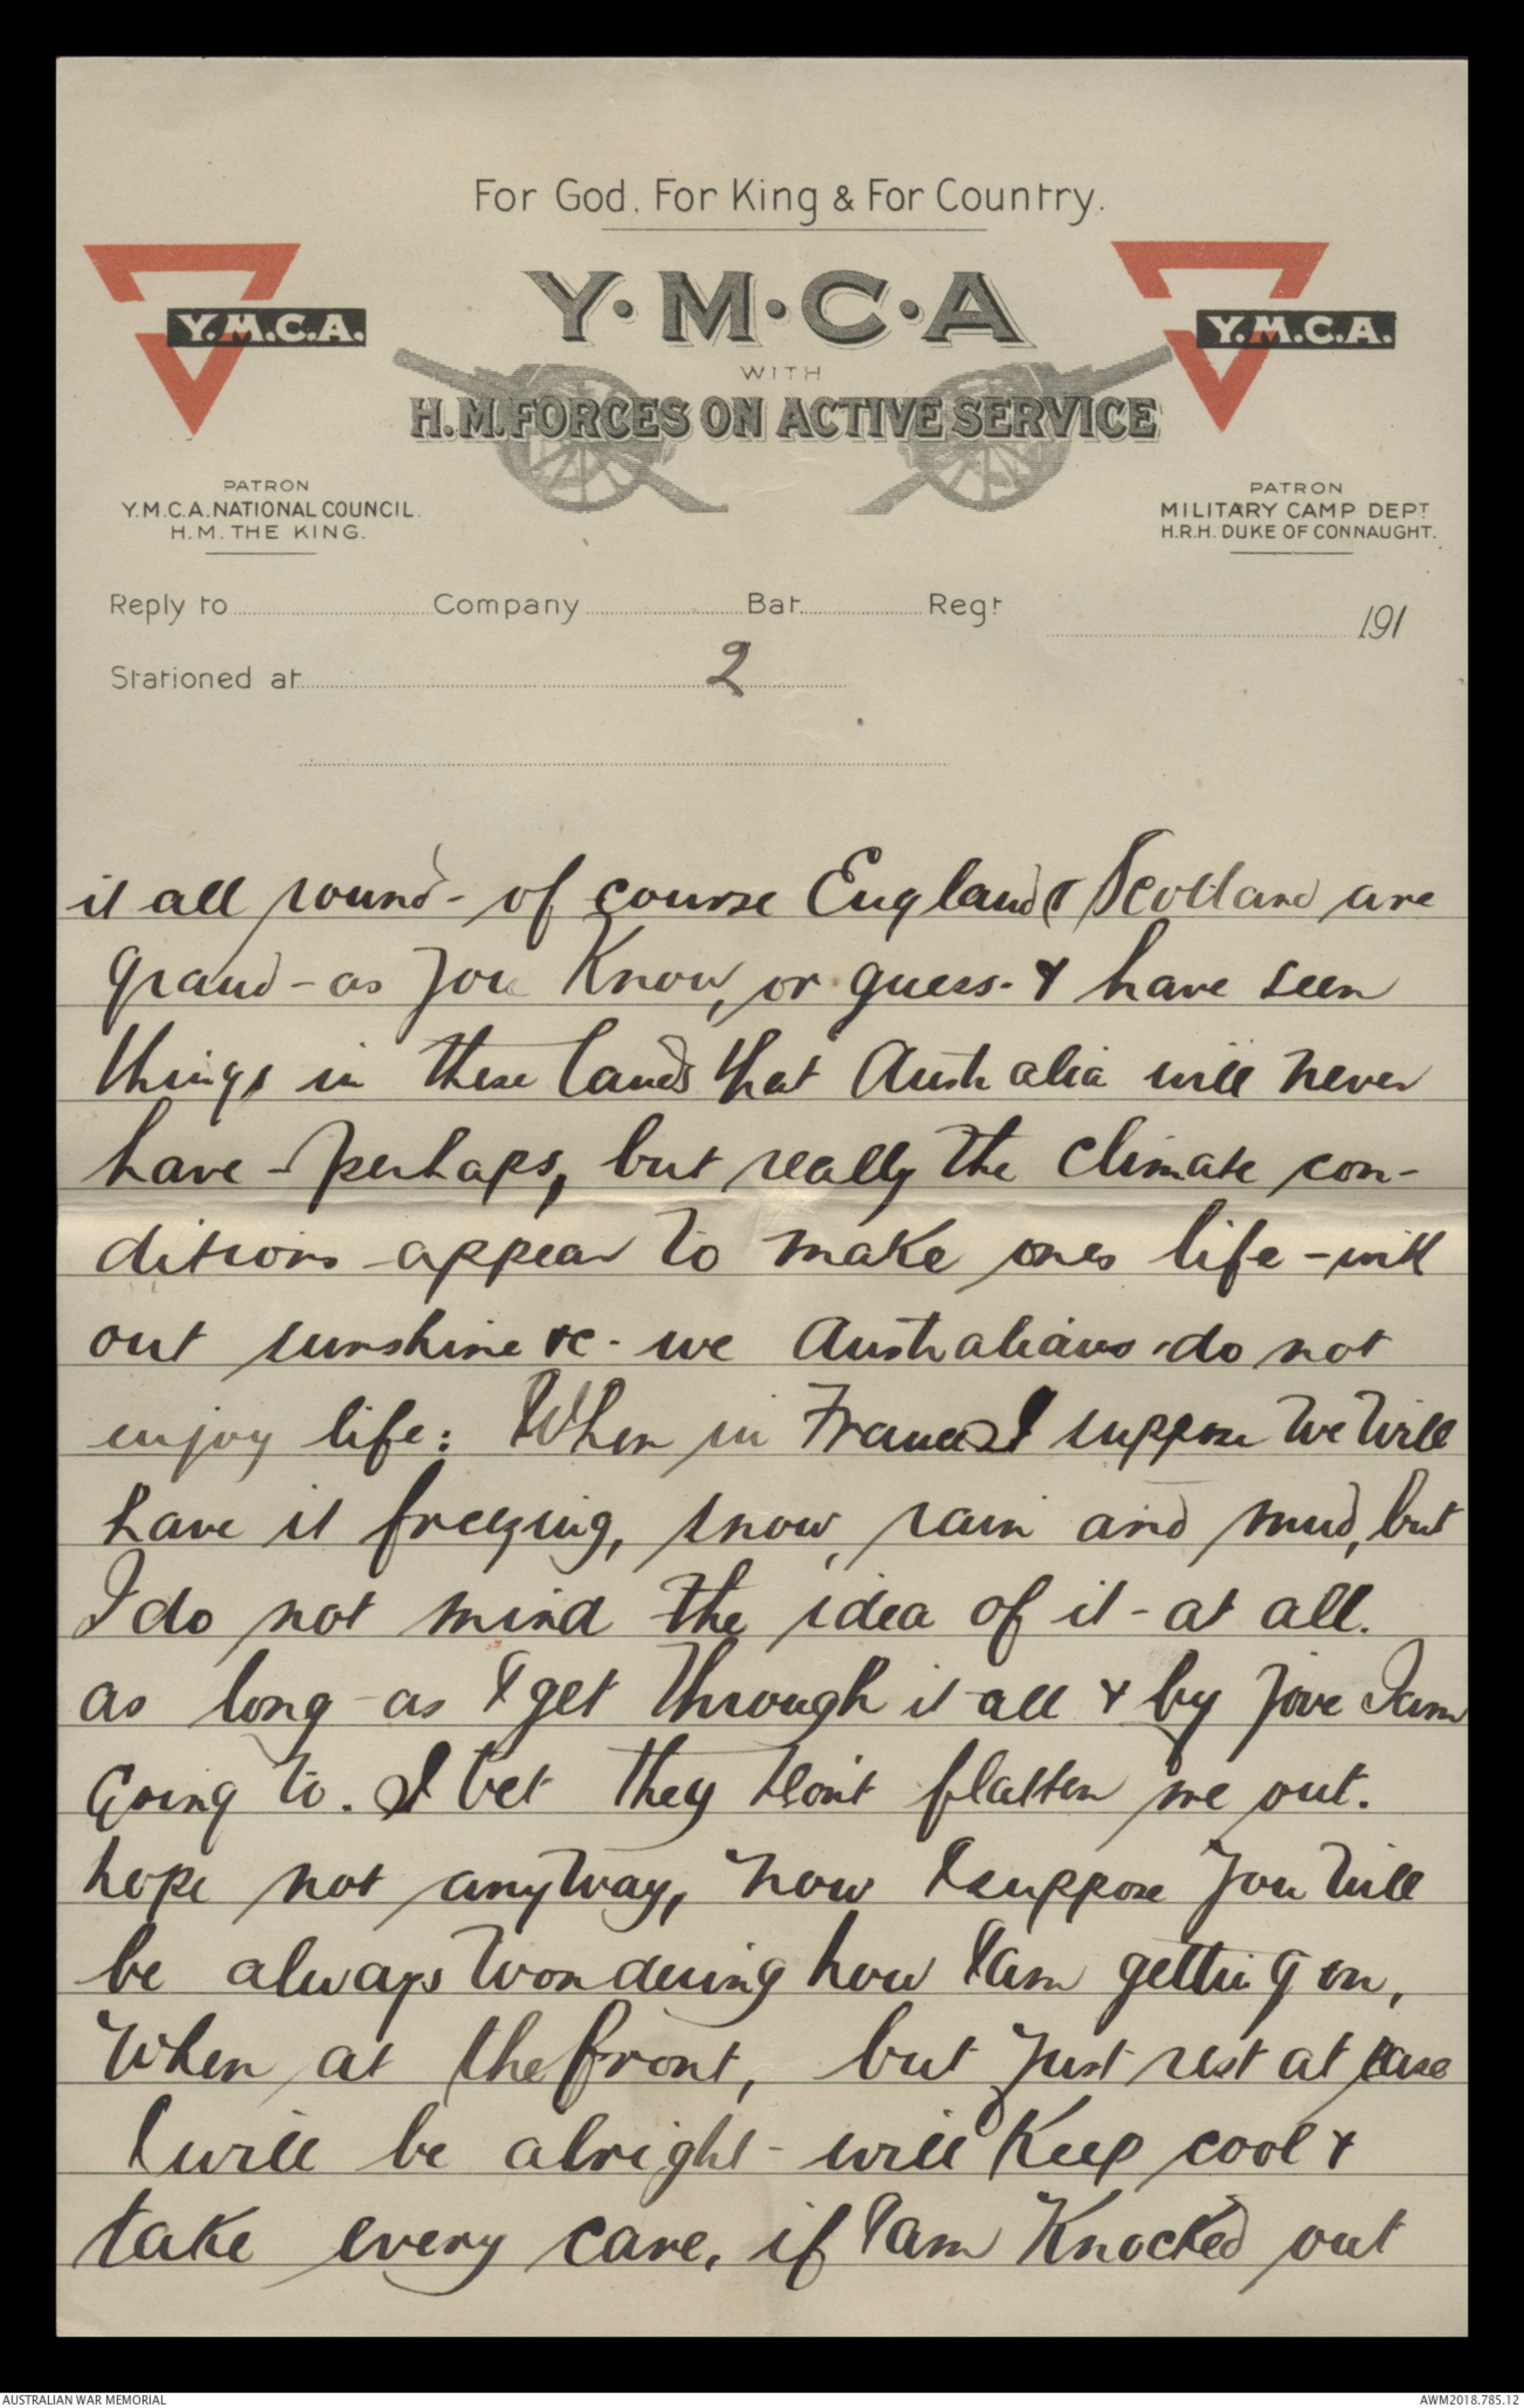 For God, For King & For Country.
Y.M.C.A.
Y·M·C·A
Y.M.C.A.
WITH
H.M. FORCES ON ACTIVE SERVICE
PATRON
Y.M.C.A. NATIONAL COUNCIL.
H.M. THE KING.
PATRON
MILITARY CAMP DEPT
H.R.H. DUKE OF CONNAUGHT.
Reply to Company Bat. Regt 191
Stationed at
2
it all round - of course England & Scotland are
grand - as you know, or guess. & have seen
things in these lands that Australia will never
have - perhaps, but really the climate con-
ditions appear to make ones life - with
out sunshine &c - we Australians do not
enjoy life: When in France I suppose we will
have it freezing, snow, rain and mud, but
I do not mind the idea of it - at all.
as long as I get through it all & by jove I am
Going to. I bet they don't flatten me out.
hope not anyway, now I suppose you will
be always wondering how I am getting on,
When at the front, but just rest at ease
I will be alright - will keep cool &
take every care, if I am knocked out
AUSTRALIAN WAR MEMORIAL
AWM2018.785.12